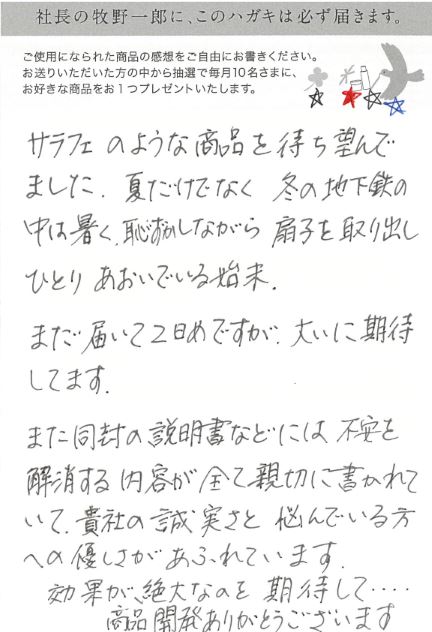 社長の牧野一郎に、このハガキは必ず届きます。
ご使用になられた商品の感想をご自由にお書きください。
お送りいただいた方の中から抽選で毎月10名さまに、
お好きな商品をお1つプレゼントいたします。
サラフェのような商品を待ち望んで
ました．夏だけでなく 冬の地下鉄の
中は暑く、恥ずかしながら 扇子を取り出し
ひとり あおいでいる始末．
まだ届いて2日めですが、大いに期待
してます．
また同封の説明書などには 不安を
解消する内容が全て親切に書かれて
いて、貴社の誠実さと 悩んでいる方
への優しさがあふれています．
効果が絶大なのを 期待して‥‥
商品開発ありがとうございます